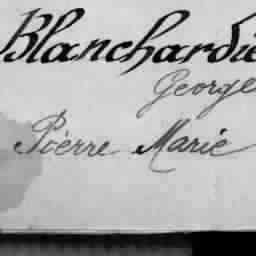 Blanchardie
George
Pierre Marie